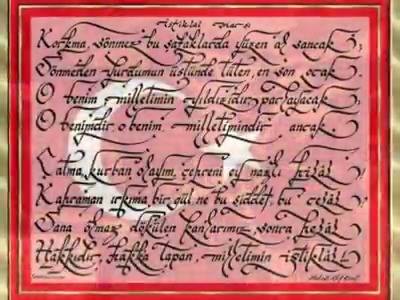 İstiklâl Marşı
Korkma, sönmez bu şafaklarda yüzen al sancak;
Sönmeden yurdumun üstünde tüten, en son ocak.
O benim milletimin yıldızıdır, parlayacak;
O benimdir, o benim milletimindir ancak.
Çatma, kurban olayım, çehreni ey nazlı hilâl!
Kahraman ırkıma bir gül, ne bu şiddet, bu celâl?
Sana olmaz dökülen kanlarımız sonra helâl,
Hakkıdır, Hakk'a tapan, milletimin istiklâl!